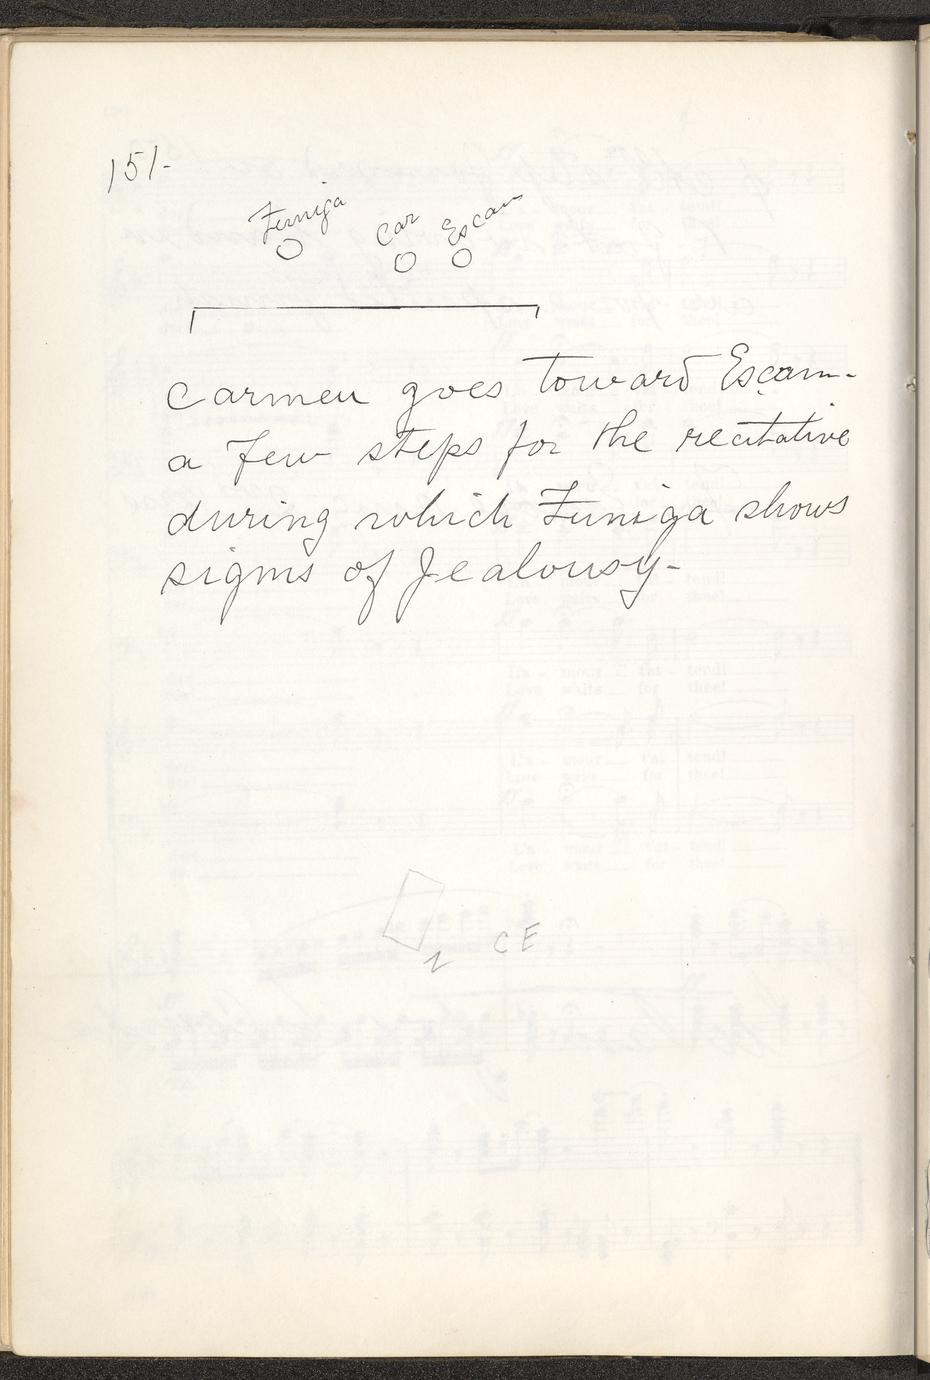 151-
Zuniga Car Escam
Carmen goes toward Escam-
a few steps for the recitative
during which Zuniga shows
signs of Jealousy-
Z C E